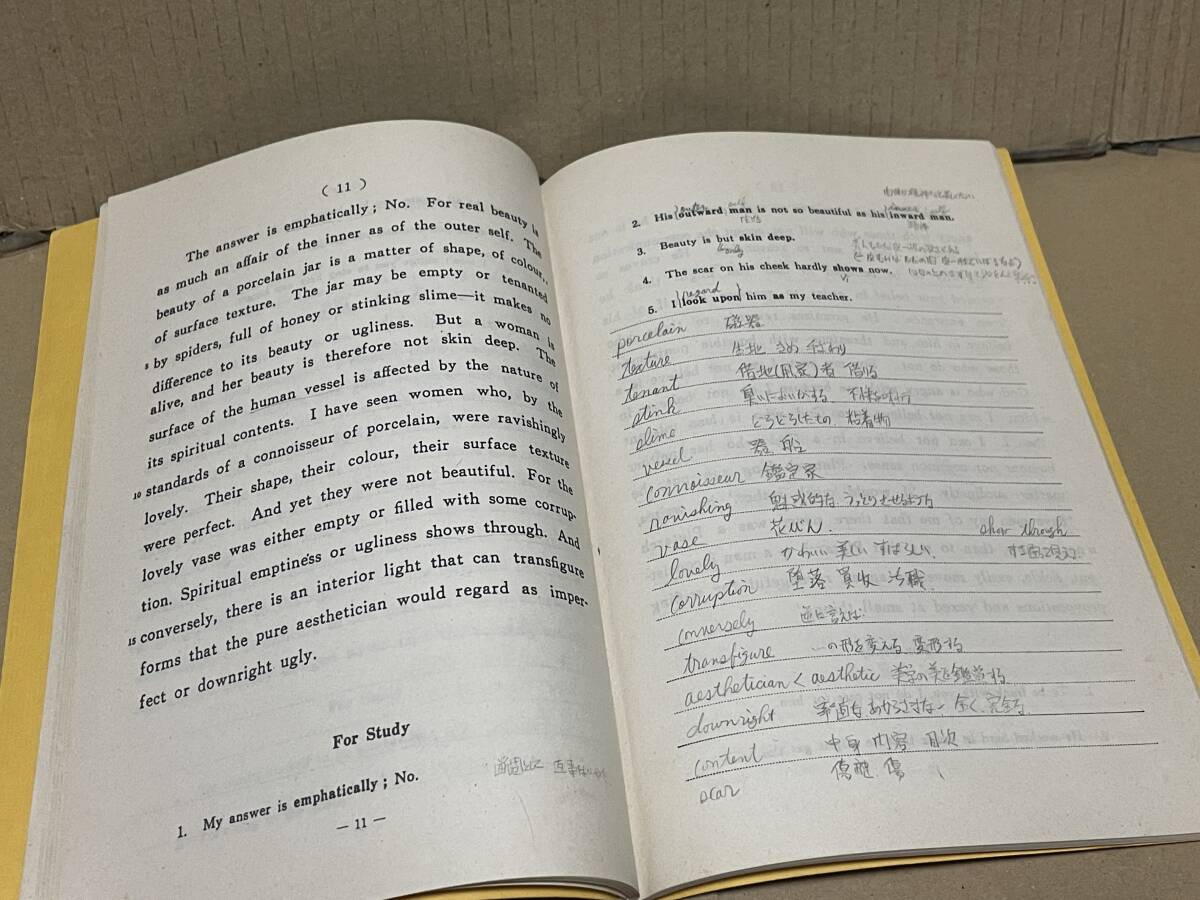 ( 11 )
The answer is emphatically; No. For real beauty is
as much an affair of the inner as of the outer self. The
beauty of a porcelain jar is a matter of shape, of colour,
of surface texture. The jar may be empty or tenanted
5 by spiders, full of honey or stinking slime—it makes no
difference to its beauty or ugliness. But a woman is
alive, and her beauty is therefore not skin deep. The
surface of the human vessel is affected by the nature of
its spiritual contents. I have seen women who, by the
10 standards of a connoisseur of porcelain, were ravishingly
lovely. Their shape, their colour, their surface texture
were perfect. And yet they were not beautiful. For the
lovely vase was either empty or filled with some corrup-
tion. Spiritual emptiness or ugliness shows through. And
15 conversely, there is an interior light that can transfigure
forms that the pure aesthetician would regard as imper-
fect or downright ugly.
For Study
1. My answer is emphatically; No.
— 11 —
2. His outward man is not so beautiful as his inward man.
3. Beauty is but skin deep.
only
4. The scar on his cheek hardly shows now.
regard
5. I look upon him as my teacher.
porcelain 磁器
texture 生地 きめ 手ざわり
tenant 借地(借家)者 借りる
stink 臭いにおいがする
slime どろどろしたもの 粘着物
vessel 器 船
connoisseur 鑑定家
ravishing 魅惑的な うっとりさせるような
vase 花びん show through
lovely かわいい 美しい すばらしい
corruption 堕落 買収 汚職
conversely 逆に言えば
transfigure …の形を変える 変形する
aesthetician < aesthetic
downright 率直な 全く 完全な
content 中身 内容 目次
scar 傷跡 傷